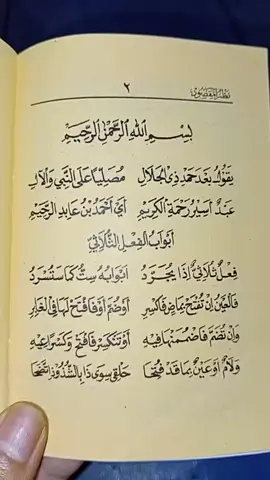 نظم المقصود
٢
بِسْمِ اللهِ الرَّحْمٰنِ الرَّحِيْمِ
يَقُوْلُ بَعْدَ حَمْدِ ذِي الْجَلَالِ مُصَلِّيًا عَلَى النَّبِيِّ وَالْاٰلِ
عَبْدٌ أَسِيْرُ رَحْمَةِ الْكَرِيْمِ أَيْ أَحْمَدُ بْنُ عَابِدِ الرَّحِيْمِ
أَبْوَابُ الْفِعْلِ الثُّلَاثِيِّ
فِعْلٌ ثُلَاثِيٌّ إِذَا يُجَرَّدُ أَبْوَابُهُ سِتٌّ كَمَا سَتُسْرَدُ
فَالْعَيْنُ إِنْ تُفْتَحْ بِمَاضٍ فَاكْسِرِ أَوْ ضُمَّ أَوْ فَافْتَحْ لَهَا فِي الْغَابِرِ
وَإِنْ تُضَمَّ فَاضْمُمَنْهَا فِيْهِ أَوْ تَنْكَسِرْ فَافْتَحْ وَكَسْرًا عِيْهِ
وَلَامٌ أَوْ عَيْنٌ بِمَا قَدْ فُتِحَا حَلْقِيْ سِوَى ذَا بِالشُّذُوْذِ اتَّضَحَا